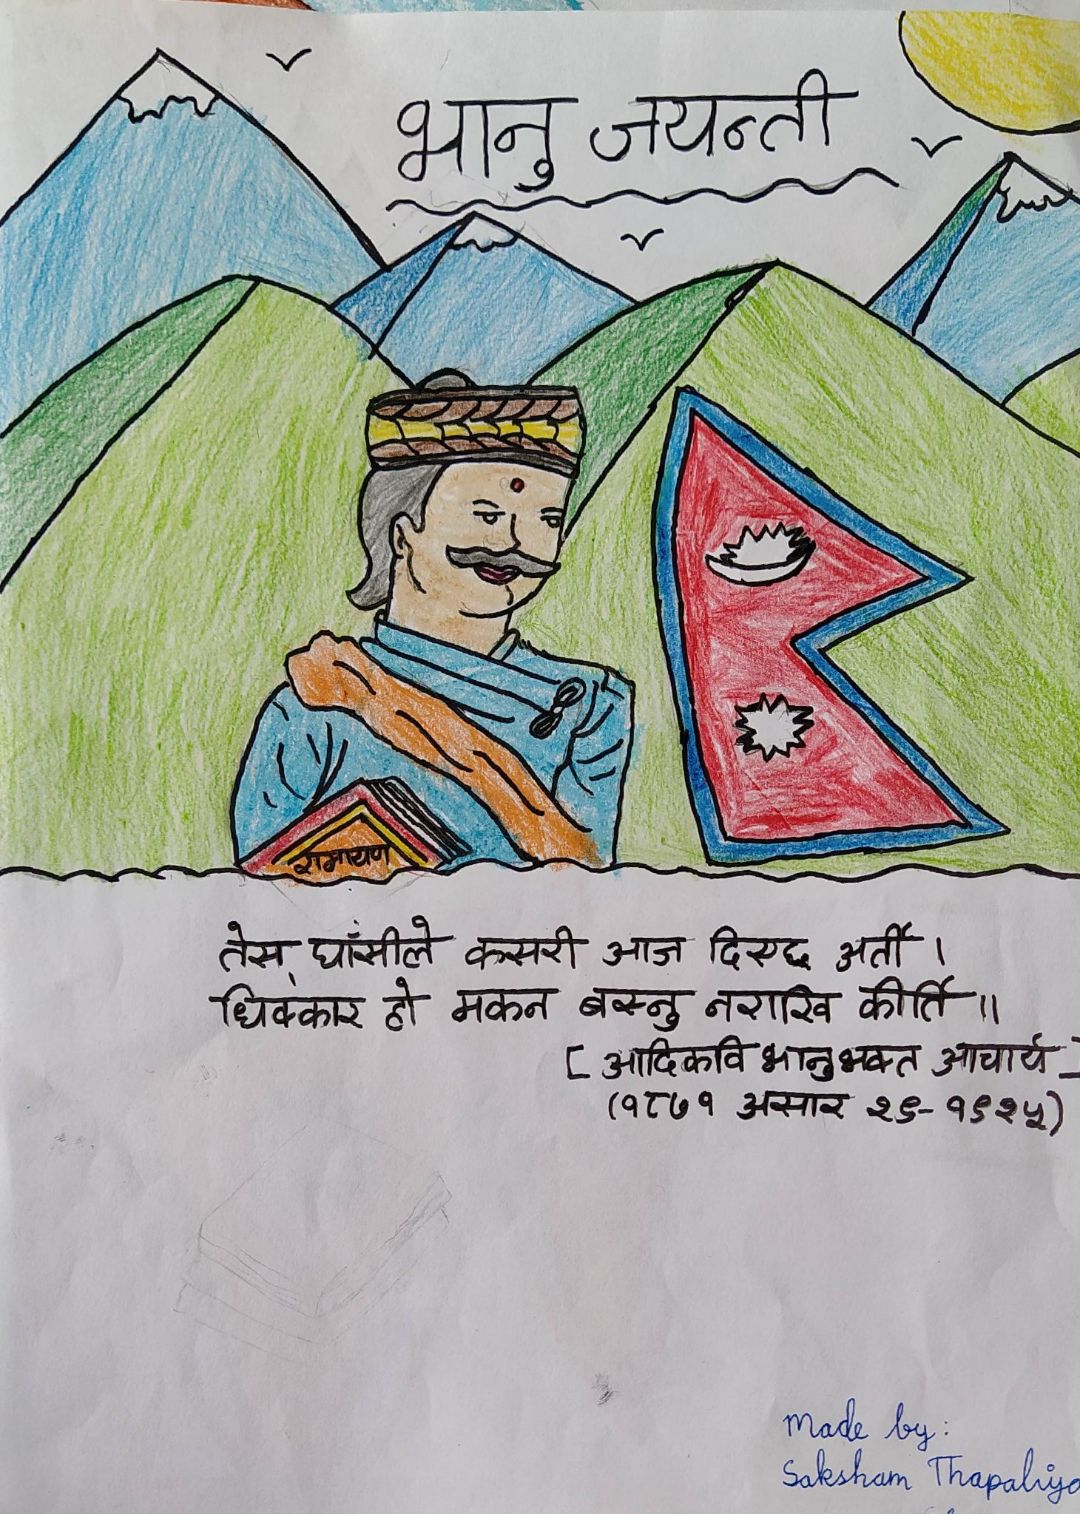 भानु जयन्ती
रामायण
तेस घाँसीले कसरी आज दिएछ अर्ती ।
धिक्कार हो मकन बस्नु नराखि कीर्ति ॥
[ आदिकवि भानुभक्त आचार्य ]
(१८७१ असार २९- १९२५)
Made by:
Saksham Thapaliya